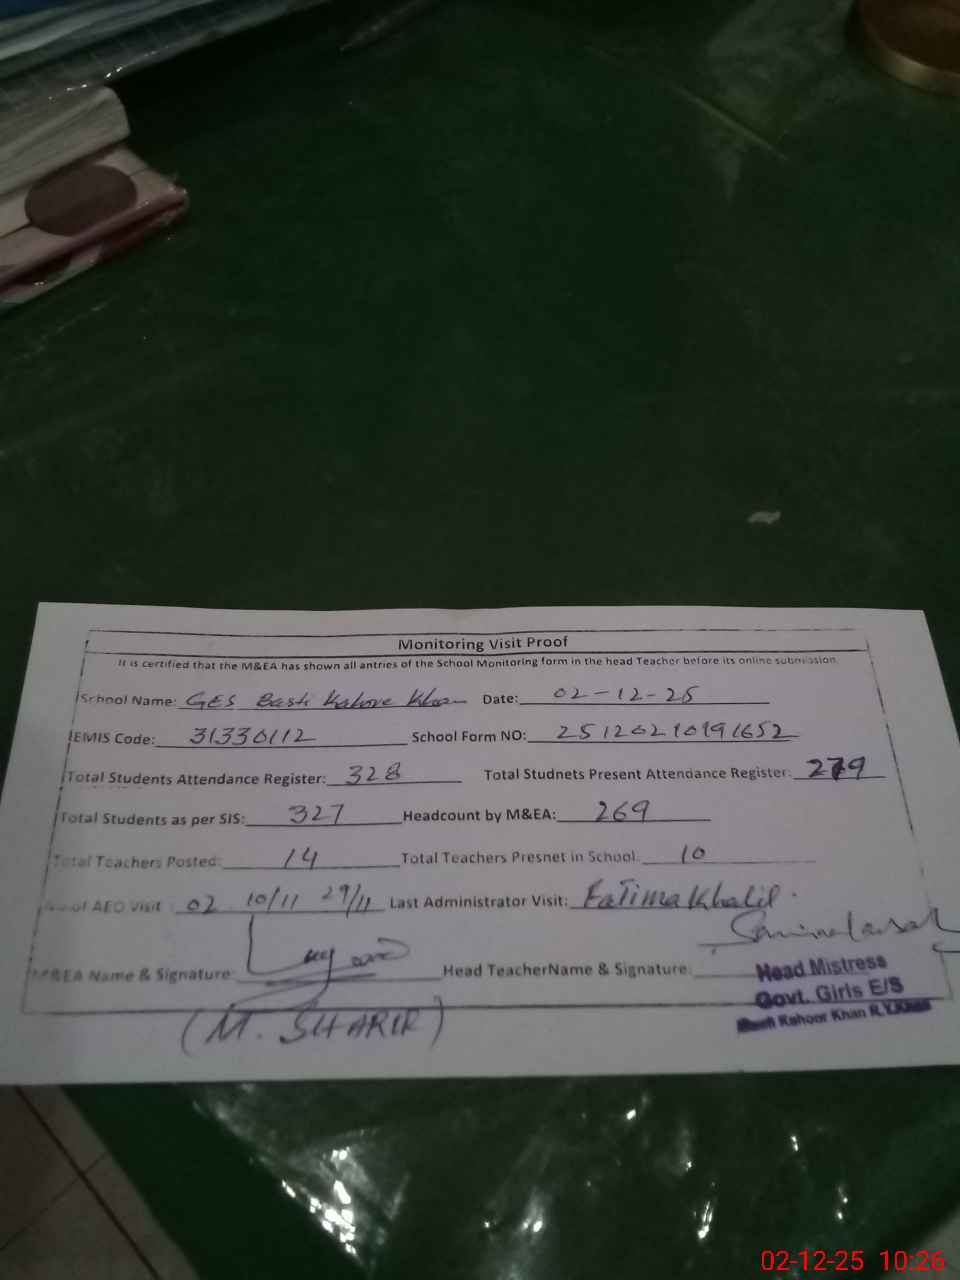 Monitoring Visit Proof
It is certified that the M&EA has shown all antries of the School Monitoring form in the head Teacher before its online submission.
School Name: GES Basti Kahore Khan Date: 02-12-25
EMIS Code: 31330112 School Form NO: 25120210191652
Total Students Attendance Register: 328 Total Studnets Present Attendance Register: 279
Total Students as per SIS: 327 Headcount by M&EA: 269
Total Teachers Posted: 14 Total Teachers Presnet in School: 10
of AEO Visit : 02 10/11 29/11 Last Administrator Visit: Fatima Khalil.
M&EA Name & Signature: Head TeacherName & Signature:
(M. SHARIF)
Head Mistress
Govt. Girls E/S
Basti Kahoor Khan R.Y.Khan
02-12-25 10:26